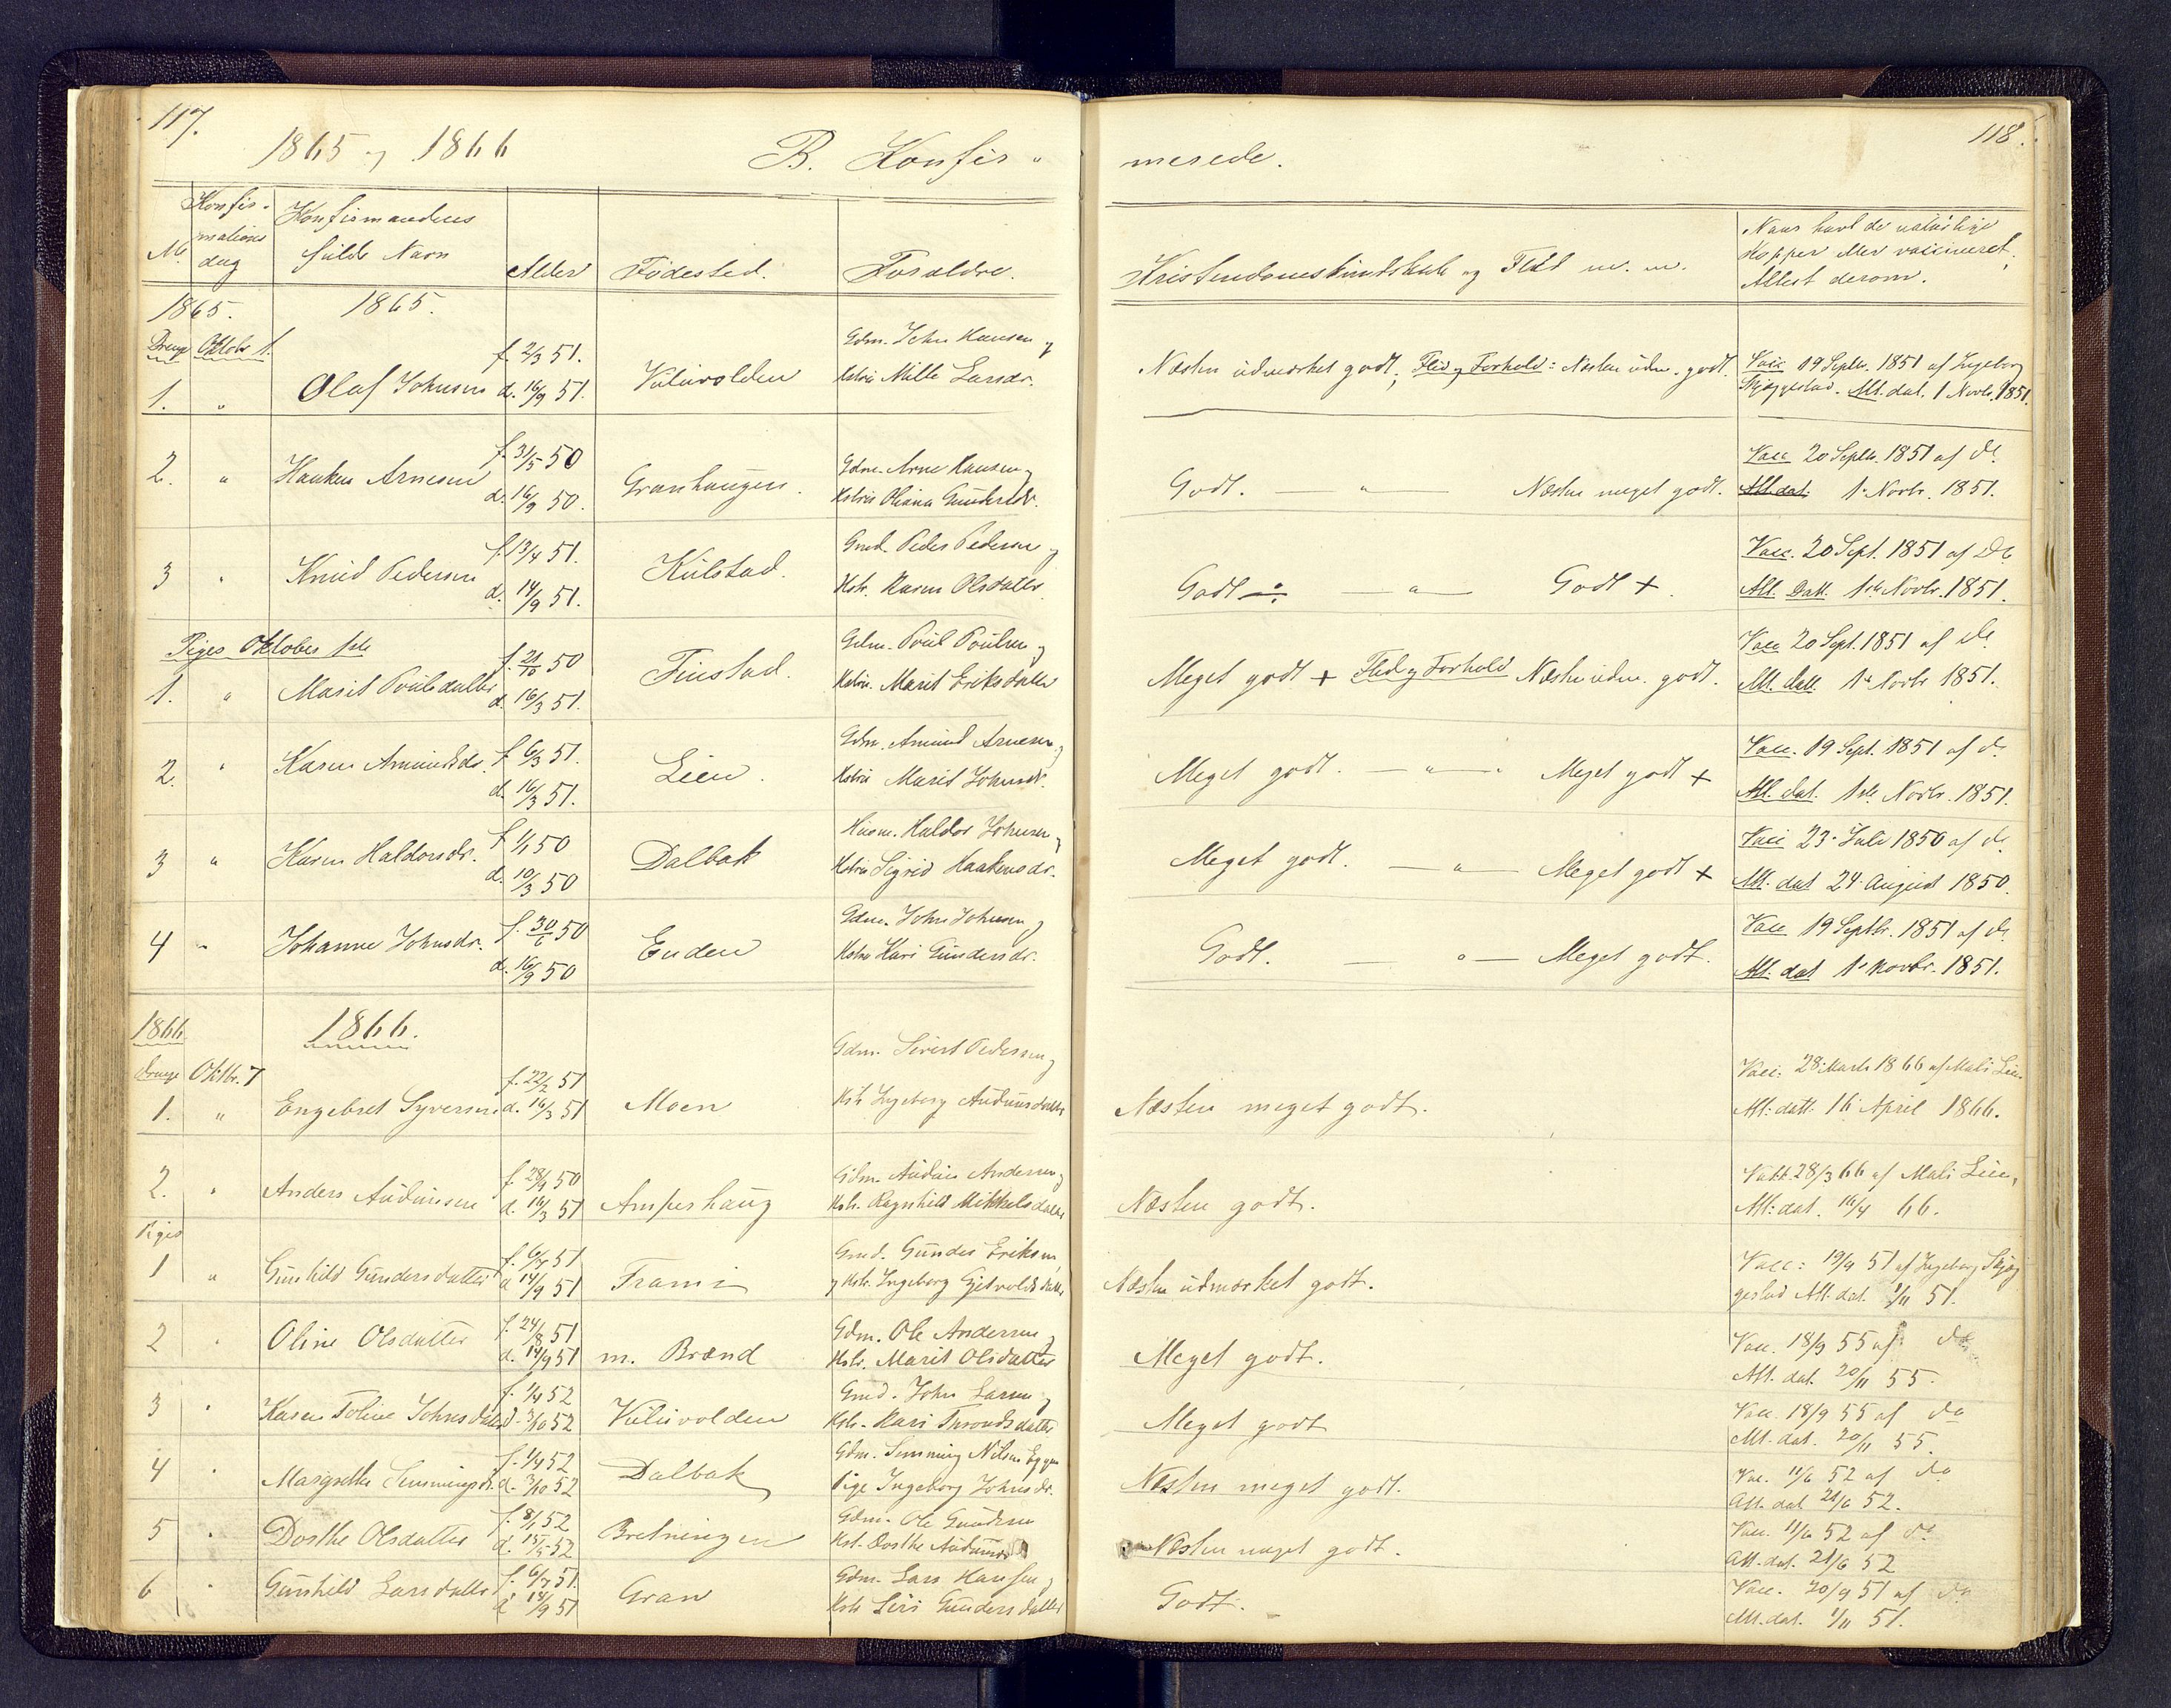 117.
1865 og 1866
B. Konfir-
No.
Konfirmations dag
Konfirmandens fulde Navn
Alder
Fødested.
Forældre.
1865.
1865.
Drenge Oktobr 1.
1. " Olaf Johnsen f. 2/3 51. d. 16/9 51. Vuluvolden Gdm. John Hansen og
Kstru Mille Larsdr.
2. " Haaken Arnesen f. 31/5 50 d. 16/9 50. Granhaugen. Gdm. Arne Hansen og
Kstru Oliana Gundersdr.
3 " Knud Pedersen f. 13/4 51. d. 14/9 51. Kulstad. Gmd. Peder Pedersen og
Kstr. Karen Olsdatter
Piger Oktober 1ste
1. " Marit Poulsdatter f. 21/10 50 d. 16/3 51. Finstad. Gdm. Poul Poulsen og
Kstru. Marit Eriksdatter
2. " Karen Amundsdr. f. 6/3 51. d. 16/3 51. Lien. Gdm. Amund Arnesen og
Kstru Marit Johnsdr.
3 " Karen Haldorsdr. f. 1/1 50 d. 10/3 50 Dalbak Husm. Haldor Johnsen og
Kstru Sigrid Haakensdr.
4 " Johanne Johnsdr. f. 30/6 50 d. 16/9 50 Enden Gdm. John Johnsen og
Kstru Kari Gundersdr.
1866
1866.
Drenge Oktbr. 7
1. " Engebret Syversen f. 22/2 51 d. 16/3 51 Moen Gdm. Sivert Pedersen og
Kstr Ingeborg Audunsdatter
2. " Anders Audunsen f. 28/9 50 d. 16/3 51 Ampershaug Gdm. Audun Andersen og
Kstr. Ragnhild Mikkelsdatter
Piger
1 " Gunhild Gundersdatter f. 6/7 51 d. 14/9 51 Frami Gmd. Gunder Eriksen
og Kstr. Ingeborg Gjetvoldsdatter
2 " Oline Olsdatter f. 24/8 51 d. 14/9 51 m. Brænd Gdm. Ole Andersen og
Kstr. Marit Olsdatter
3 " Karen Toline Johnsdatter f. 1/4 52 d. 3/10 52 Vuluvolden Gmd. John Larsen og
Kstr. Kari Throndsdatter
4 " Margrethe Semmingsdr. f. 1/4 52 d. 3/10 52 Dalbak Gdm. Semming Nilsen Eggen
Pige Ingeborg Johnsdr.
5 " Dorthe Olsdatter f. 8/1 52 52 Bretningen Gdm. Ole Gundersen
Kst. Dorthe Audunsdr
6 " Gunhild Larsdatter f. 6/7 51. d. 14/9 51 Gran Gdm. Lars Hansen og
Kstr Siri Gundersdatter
118.
merede.
Kristendomskundskab og Flid m. m.
Naar havt de naturlige
Kopper eller vaccineret,
Attest derom.
Næsten udmærket godt; Flid og Forhold: Næsten udm. godt. Vacc 19 Septbr. 1851 af Ingeborg
Skjæggestad. Att. dat. 1 Novbr. 1851.
Godt. — " — Næsten meget godt. Vacc 20 Septbr. 1851 af do.
Att. dat. 1. Novbr. 1851.
Godt ÷ — " — Godt +. Vacc. 20 Sept. 1851 af Do
Att. Datt. 1ste Novbr. 1851.
Meget godt + Flid og Forhold Næsten udm. godt. Vacc 20 Sept. 1851 af do
Att. datt. 1. Novbr 1851.
Meget godt. — " — Meget godt + Vacc. 19 Sept. 1851 af do
Att. dat. 1ste Novbr. 1851.
Meget godt. — " — Meget godt + Vacc 23. Juli 1850 af do
Att. dat 24. August 1850.
Godt. — " — Meget godt. Vacc 19 Septbr. 1851 af do
Att. dat 1. Novbr. 1851.
Næsten meget godt. Vacc. 28. Marts 1866 af Mali Lien
Att: datt. 16 April 1866.
Næsten godt. Vakt. 28/3 66 af Mali Lien,
Att: dat. 16/4 66.
Næsten udmærket godt. Vacc: 19/9 51 af Ingeborg Skjæg
gestad Att. dat. 1/11 51.
Meget godt. Vacc. 18/9 55 af do
Att. dat. 20/11 55.
Meget godt Vacc. 18/9 55 af do
Att. dat. 20/11 55.
Næsten meget godt. Vac. 11/6 52 af do
Att. dat 21/6 52.
Næsten meget godt. Vacc. 11/6 52 af do
Att. dat. 21/6 52
Godt. Vacc. 20/9 51 af do
Att. dat. 1/11 51.